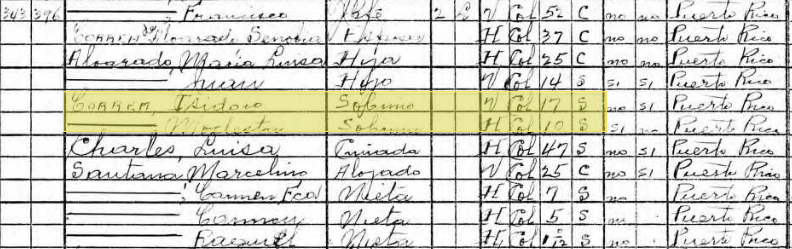 343 396 ——, Francisco Jefe 2 V Col 52 C no no Puerto Rico
Correa de Alvarado Esposa H Col 37 C no no Puerto Rico
Alvarado, Maria Luisa Hija H Col 25 C no no Puerto Rico
——, Juan Hijo V Col 14 S si si Puerto Rico
Correa, Isidoro Sobrino V Col 17 S no si Puerto Rico
—— Modesta Sobrina H Col 10 S si no Puerto Rico
Charles, Luisa Cuñada H Col 47 S no si Puerto Rico
Santana Marcelino Alojado V Col 25 C no si Puerto Rico
——, Carmen Fca Nieta H Col 7 S no Puerto Rico
—— Nieta H Col 5 S Puerto Rico
—— Raquel Nieta H Col S Puerto Rico